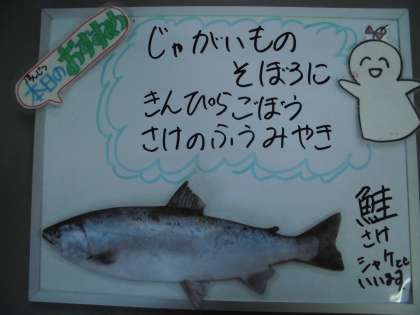 本日の
おすすめ
じゃがいもの
そぼろに
きんぴらごぼう
さけのふうみやき
鮭
さけ
シャケとも
いいます